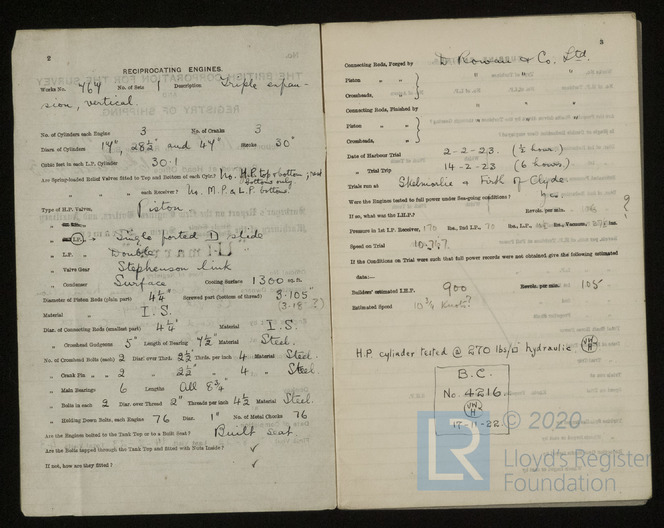 2
RECIPROCATING ENGINES.
Works No. 764 No. of Sets 1 Description Triple expan-
sion, vertical.
No. of Cylinders each Engine 3 No. of Cranks 3
Diars. of Cylinders 17", 28½" and 47" Stroke 30"
Cubic feet in each L.P. Cylinder 30.1
Are Spring-loaded Relief Valves fitted to Top and Bottom of each Cylr.? No. H.P. top & bottom;
bottoms only
" " each Receiver? No. M.P. & L.P. bottoms.
Type of H.P. Valves, Piston
" I.P. " Single ported D slide
" L.P. " Double
" Valve Gear Stephenson link
" Condenser Surface Cooling Surface 1300 sq. ft.
Diameter of Piston Rods (plain part) 4¼" Screwed part (bottom of thread) 3.105"
(3.18 ?)
Material I.S.
Diar. of Connecting Rods (smallest part) 4¼" Material I.S.
" Crosshead Gudgeons 5" Length of Bearing 7½" Material Steel.
No. of Crosshead Bolts (each) 2 Diar. over Thrd. 2½" Thrds. per inch 4 Material Steel.
" Crank Pin " " 2 " 2½" " 4 " Steel
" Main Bearings 6 Lengths All 8¾"
" Bolts in each 2 Diar. over Thread 2" Threads per inch 4½ Material Steel.
" Holding Down Bolts, each Engine 76 Diar. 1" No. of Metal Chocks 76
Are the Engines bolted to the Tank Top or to a Built Seat? Built seat.
Are the Bolts tapped through the Tank Top and fitted with Nuts Inside? ✓
If not, how are they fitted? ✓
3
Connecting Rods, Forged by D. Rowell & Co. Ltd.
Piston " "
Crossheads, "
Connecting Rods, Finished by
Piston " "
Crossheads, "
Date of Harbour Trial 2-2-23. (½ hour.)
" Trial Trip 14-2-23 (6 hours.)
Trials run at Skelmorlie & Firth of Clyde.
Were the Engines tested to full power under Sea-going conditions?
If so, what was the I.H.P.? Revols. per min.
Pressure in 1st I.P. Receiver, lbs., 2nd I.P. lbs., L.P., lbs., Vacuum, ins.
Speed on Trial
If the Conditions on Trial were such that full power records were not obtained give the following estimated
data:—
Builders' estimated I.H.P. 900 Revols. per min. 105
Estimated Speed 10¾ Knots?
H.P. cylinder tested @ 270 lbs/□" hydraulic.
B.C.
No. 4216
17-11-22
LR
© 2020
Lloyd's Register
Foundation